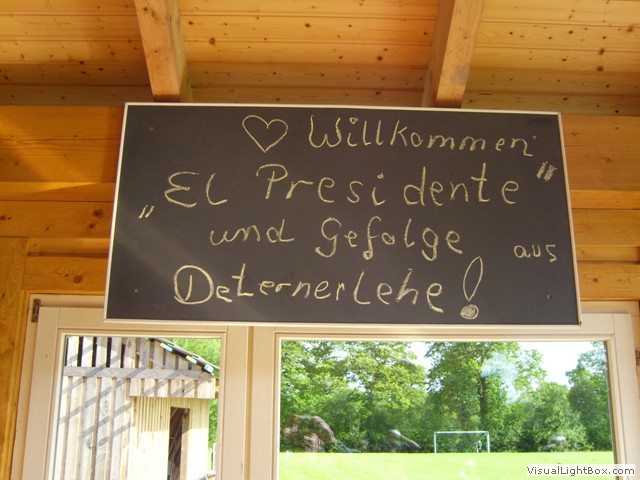 ♡ Willkommen
„El Presidente"
und Gefolge aus
Deternerlehe!
VisualLightBox.com